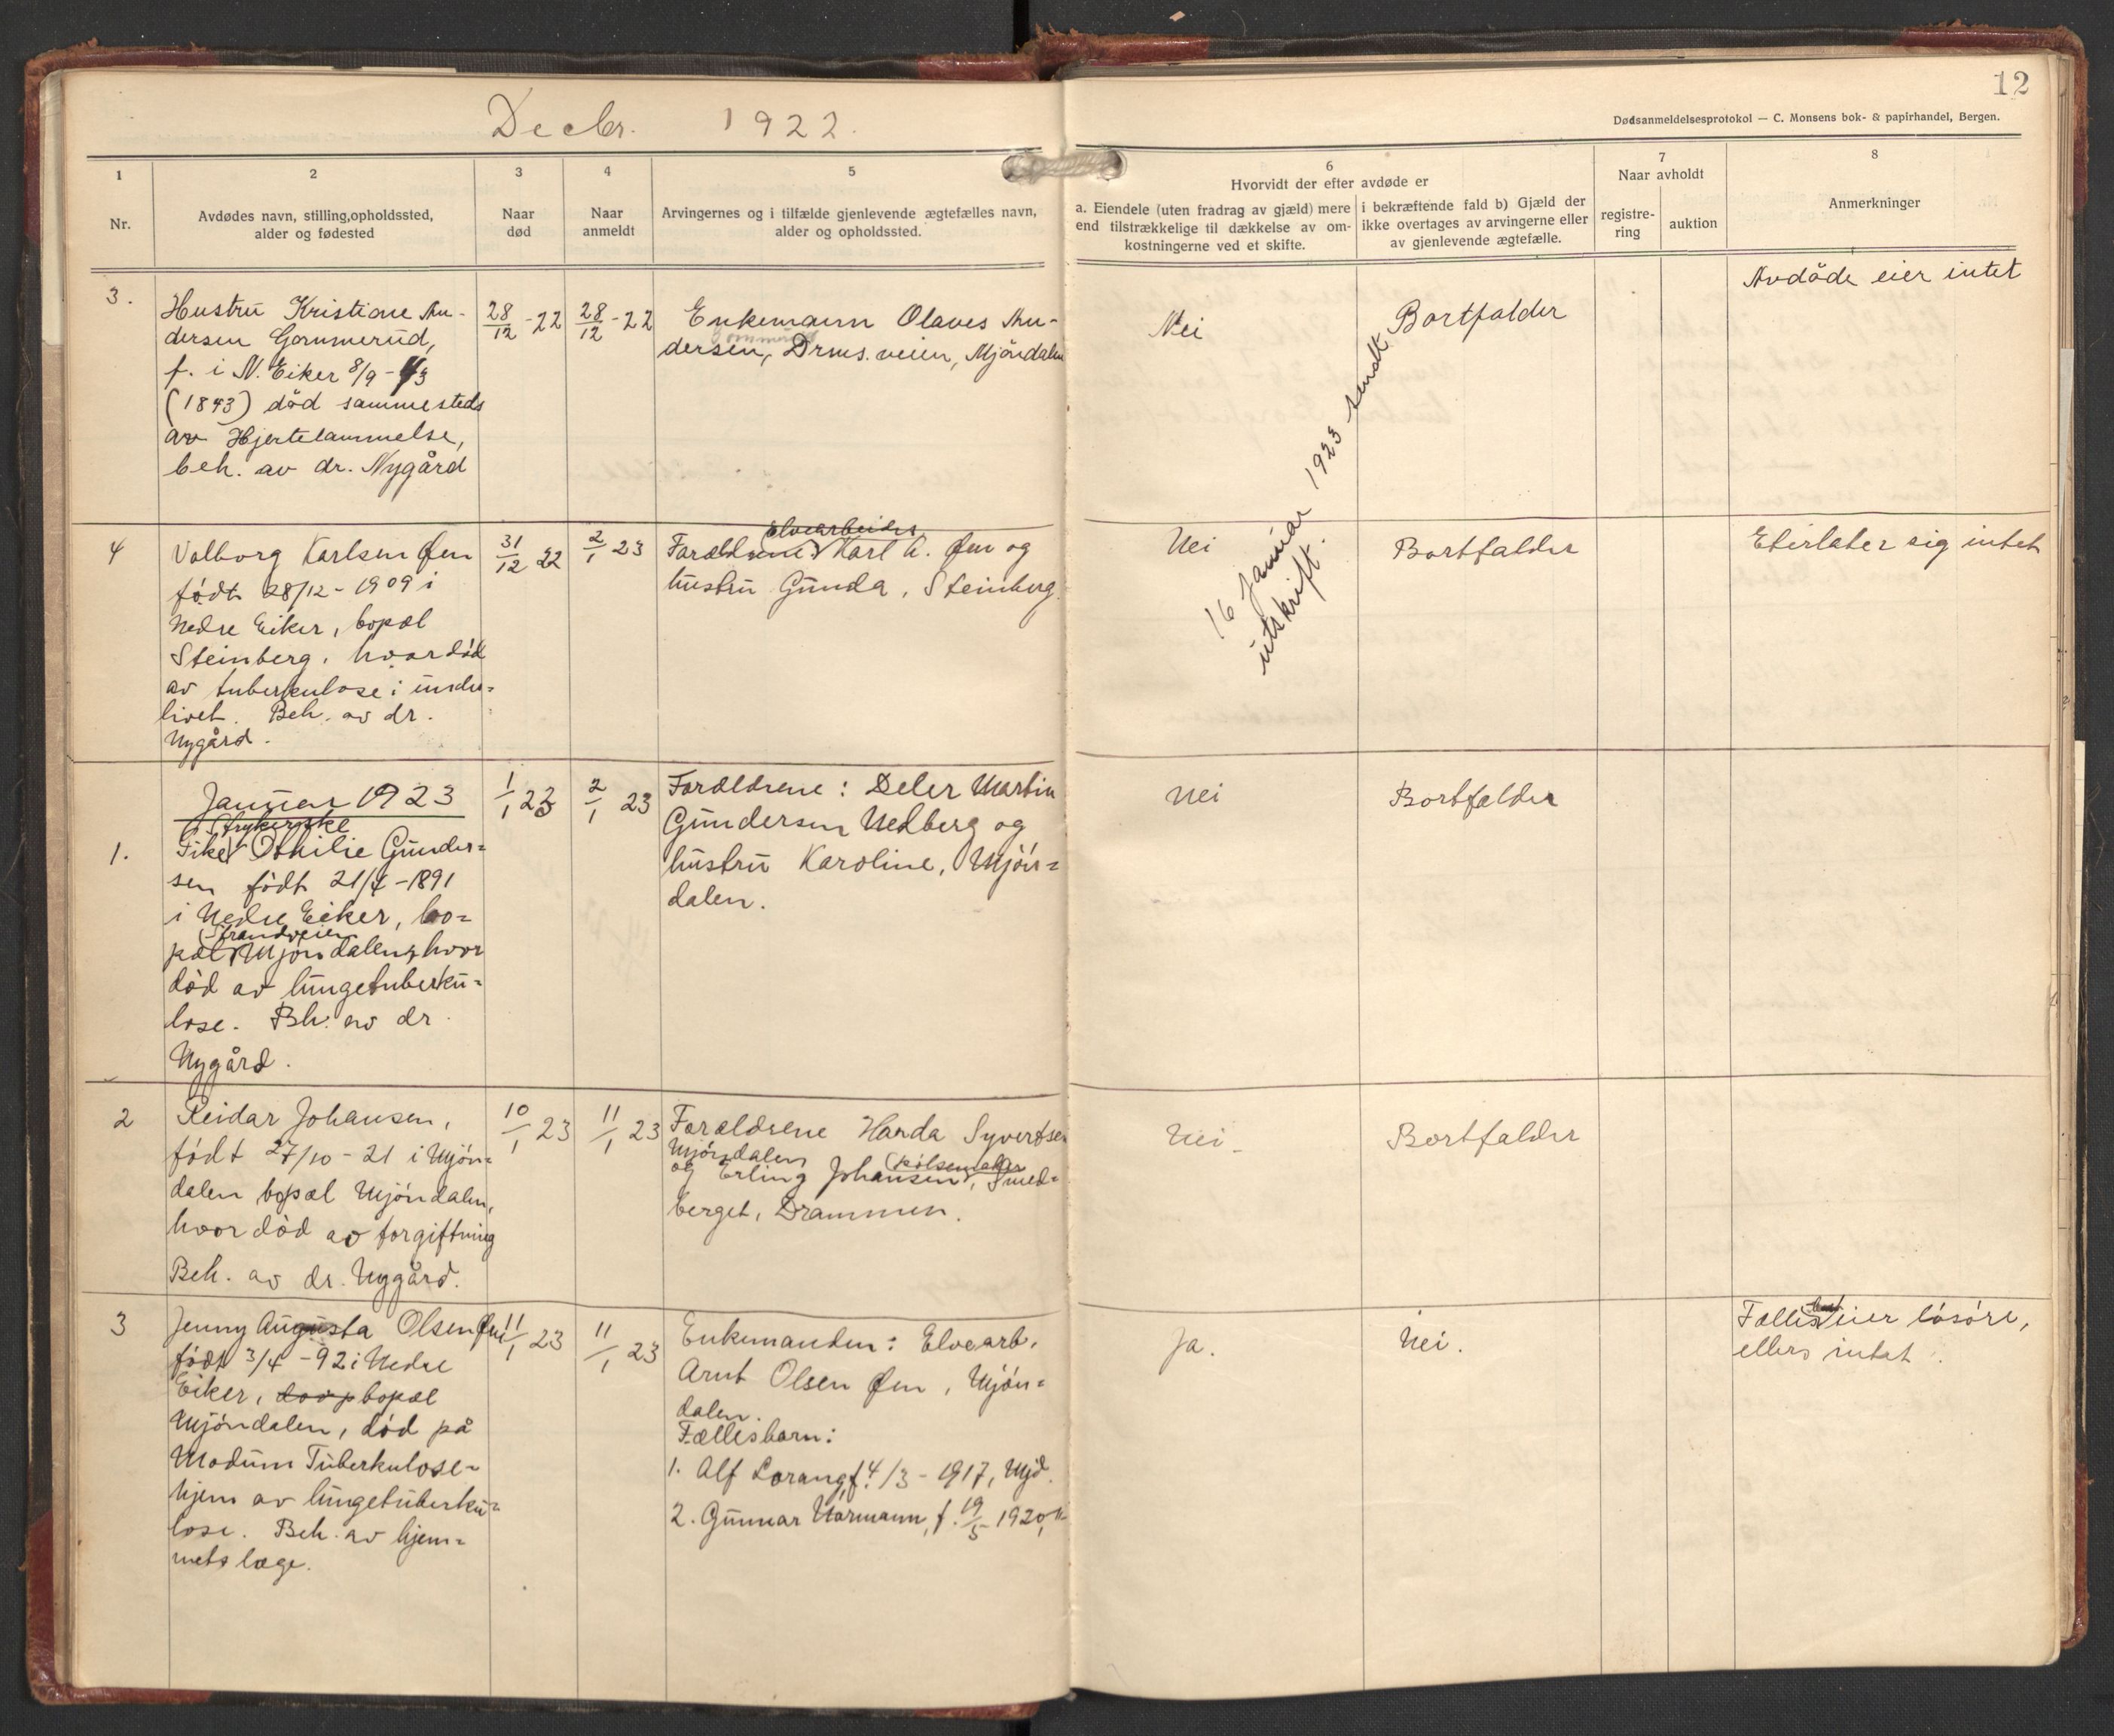 12
Decbr. 1922.
Dødsanmeldelsesprotokol — C. Monsens bok- & papirhandel, Bergen.
1
Nr.
2
Avdødes navn, stilling, opholdssted,
alder og fødested
3
Naar
død
4
Naar
anmeldt
5
Arvingernes og i tilfælde gjenlevende ægtefælles navn,
alder og opholdssted.
6
Hvorvidt der efter avdøde er
a. Eiendele (uten fradrag av gjæld) mere
end tilstrækkelige til dækkelse av om-
kostningerne ved et skifte.
i bekræftende fald b) Gjæld der
ikke overtages av arvingerne eller
av gjenlevende ægtefælle.
7
Naar avholdt
registre-
ring
auktion
8
Anmerkninger
3.
Hustru Kristiane An-
dersen Gommerud,
f. i N. Eiker 8/9-43
(1843) død sammesteds
av Hjertelammelse,
beh. av dr. Nygård
28/12-22
28/12-22
Enkemann Olaves An-
Gommerud
dersen, Drms.veien, Mjöndalen
Nei
Bortfalder
Avdöde eier intet
4
Valborg Karlsen Øen
født 28/12-1909 i
Nedre Eiker, bopæl
Steinberg, hvor död
av tuberkulose i under-
livet. Beh. av dr.
Nygård.
31/12 22
2/1 23
Elvearbeider
Forældrene Karl A. Øen og
hustru Gunda, Steinberg.
Nei
Bortfalder
Eterlater sig intet
16 januar 1923 sendt
utskrift.
Januar 1923
1.
Strykerske
Pike Othilie Gunder=
sen født 21/4-1891
i Nedre Eiker, bo=
Strandveien
pæl Mjøndalen, hvor
död av lungetuberku=
lose. Bh. av dr.
Nygård.
1/1 23
2/1 23
Forældrene: Peler Martin
Gundersen Nedberg og
hustru Karoline, Mjön=
dalen.
Nei
Bortfalder
2
Reidar Johansen,
født 27/10-21 i Mjön=
dalen bopæl Mjöndalen,
hvor död av forgiftning
Beh. av dr. Nygård.
10/1 23
11/1 23
Forældrene Handa Syvertsen
Mjöndalen
pølsemaker
og Erling Johansen, Smed=
berget, Drammen.
Nei-
Bortfalder
3
Jenny Augusta Olsen Øen
født 3/4-92 i Nedre
Eiker, bopæl
Mjöndalen, död på
Modum Tuberkulose-
hjem av lungetuberku=
lose. Beh. av hjem=
mets læge.
11/1 23
11/1 23
Enkemanden: Elvearb.
Arnt Olsen Øen, Mjön=
dalen.
Fællesbarn:
1. Alf Lorang, f. 4/3-1917, Mjd.
2. Gunnar Normann, f. 19/5 1920, "
Ja.
Nei.
bo
Fælles eier lösöre,
ellers intet.